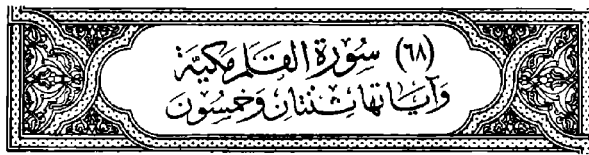 (٦٨) سُورَة القَلَم مَكيَّة
وَآيَاتهَا ثنتَان وَخمسُون